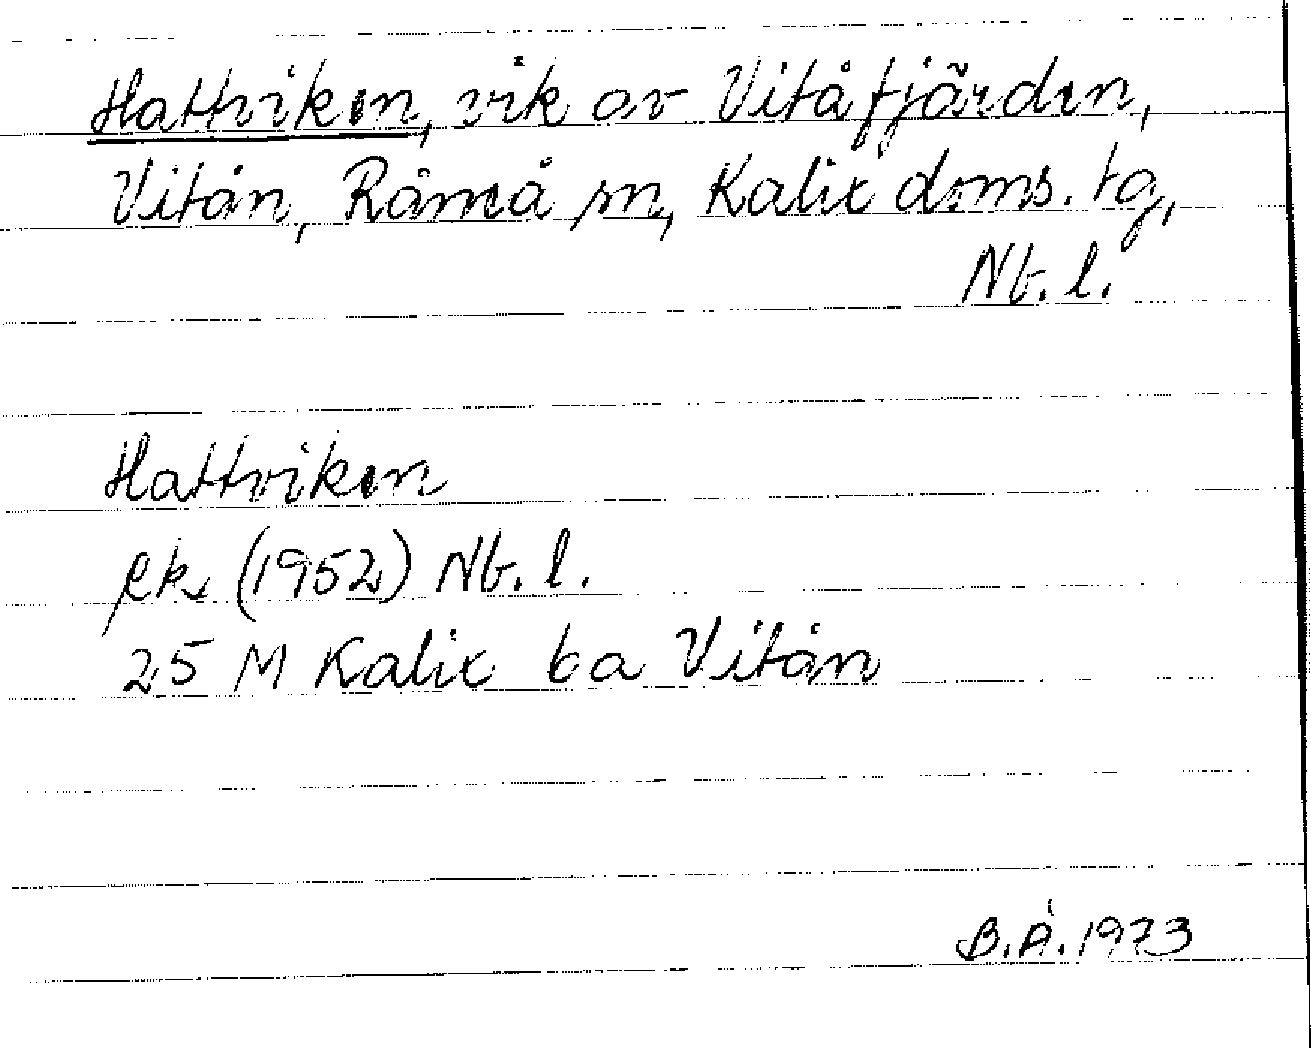 Hattviken, vik av Vitåfjärden,
Vitån, Råneå sn, Kalix doms. tg,
Nb. l.
Hattviken
ek. (1952) Nb. l.
25 M Kalix 6a Vitån
B.Å. 1973